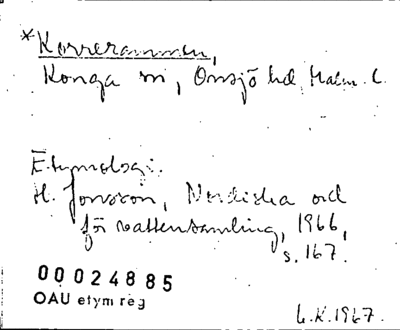 *Korrerammen,
Konga sn, Onsjö hd, Malm. l.
Etymologi:
H. Jonsson, Nordiska ord
för vattensamling, 1966,
s. 167.
00024885
OAU etym reg
L.K.1967.